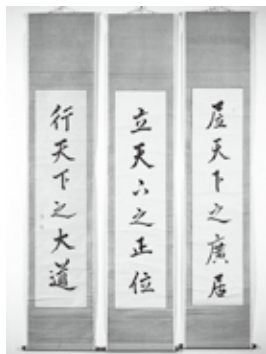 居天下之廣居
立天下之正位
行天下之大道